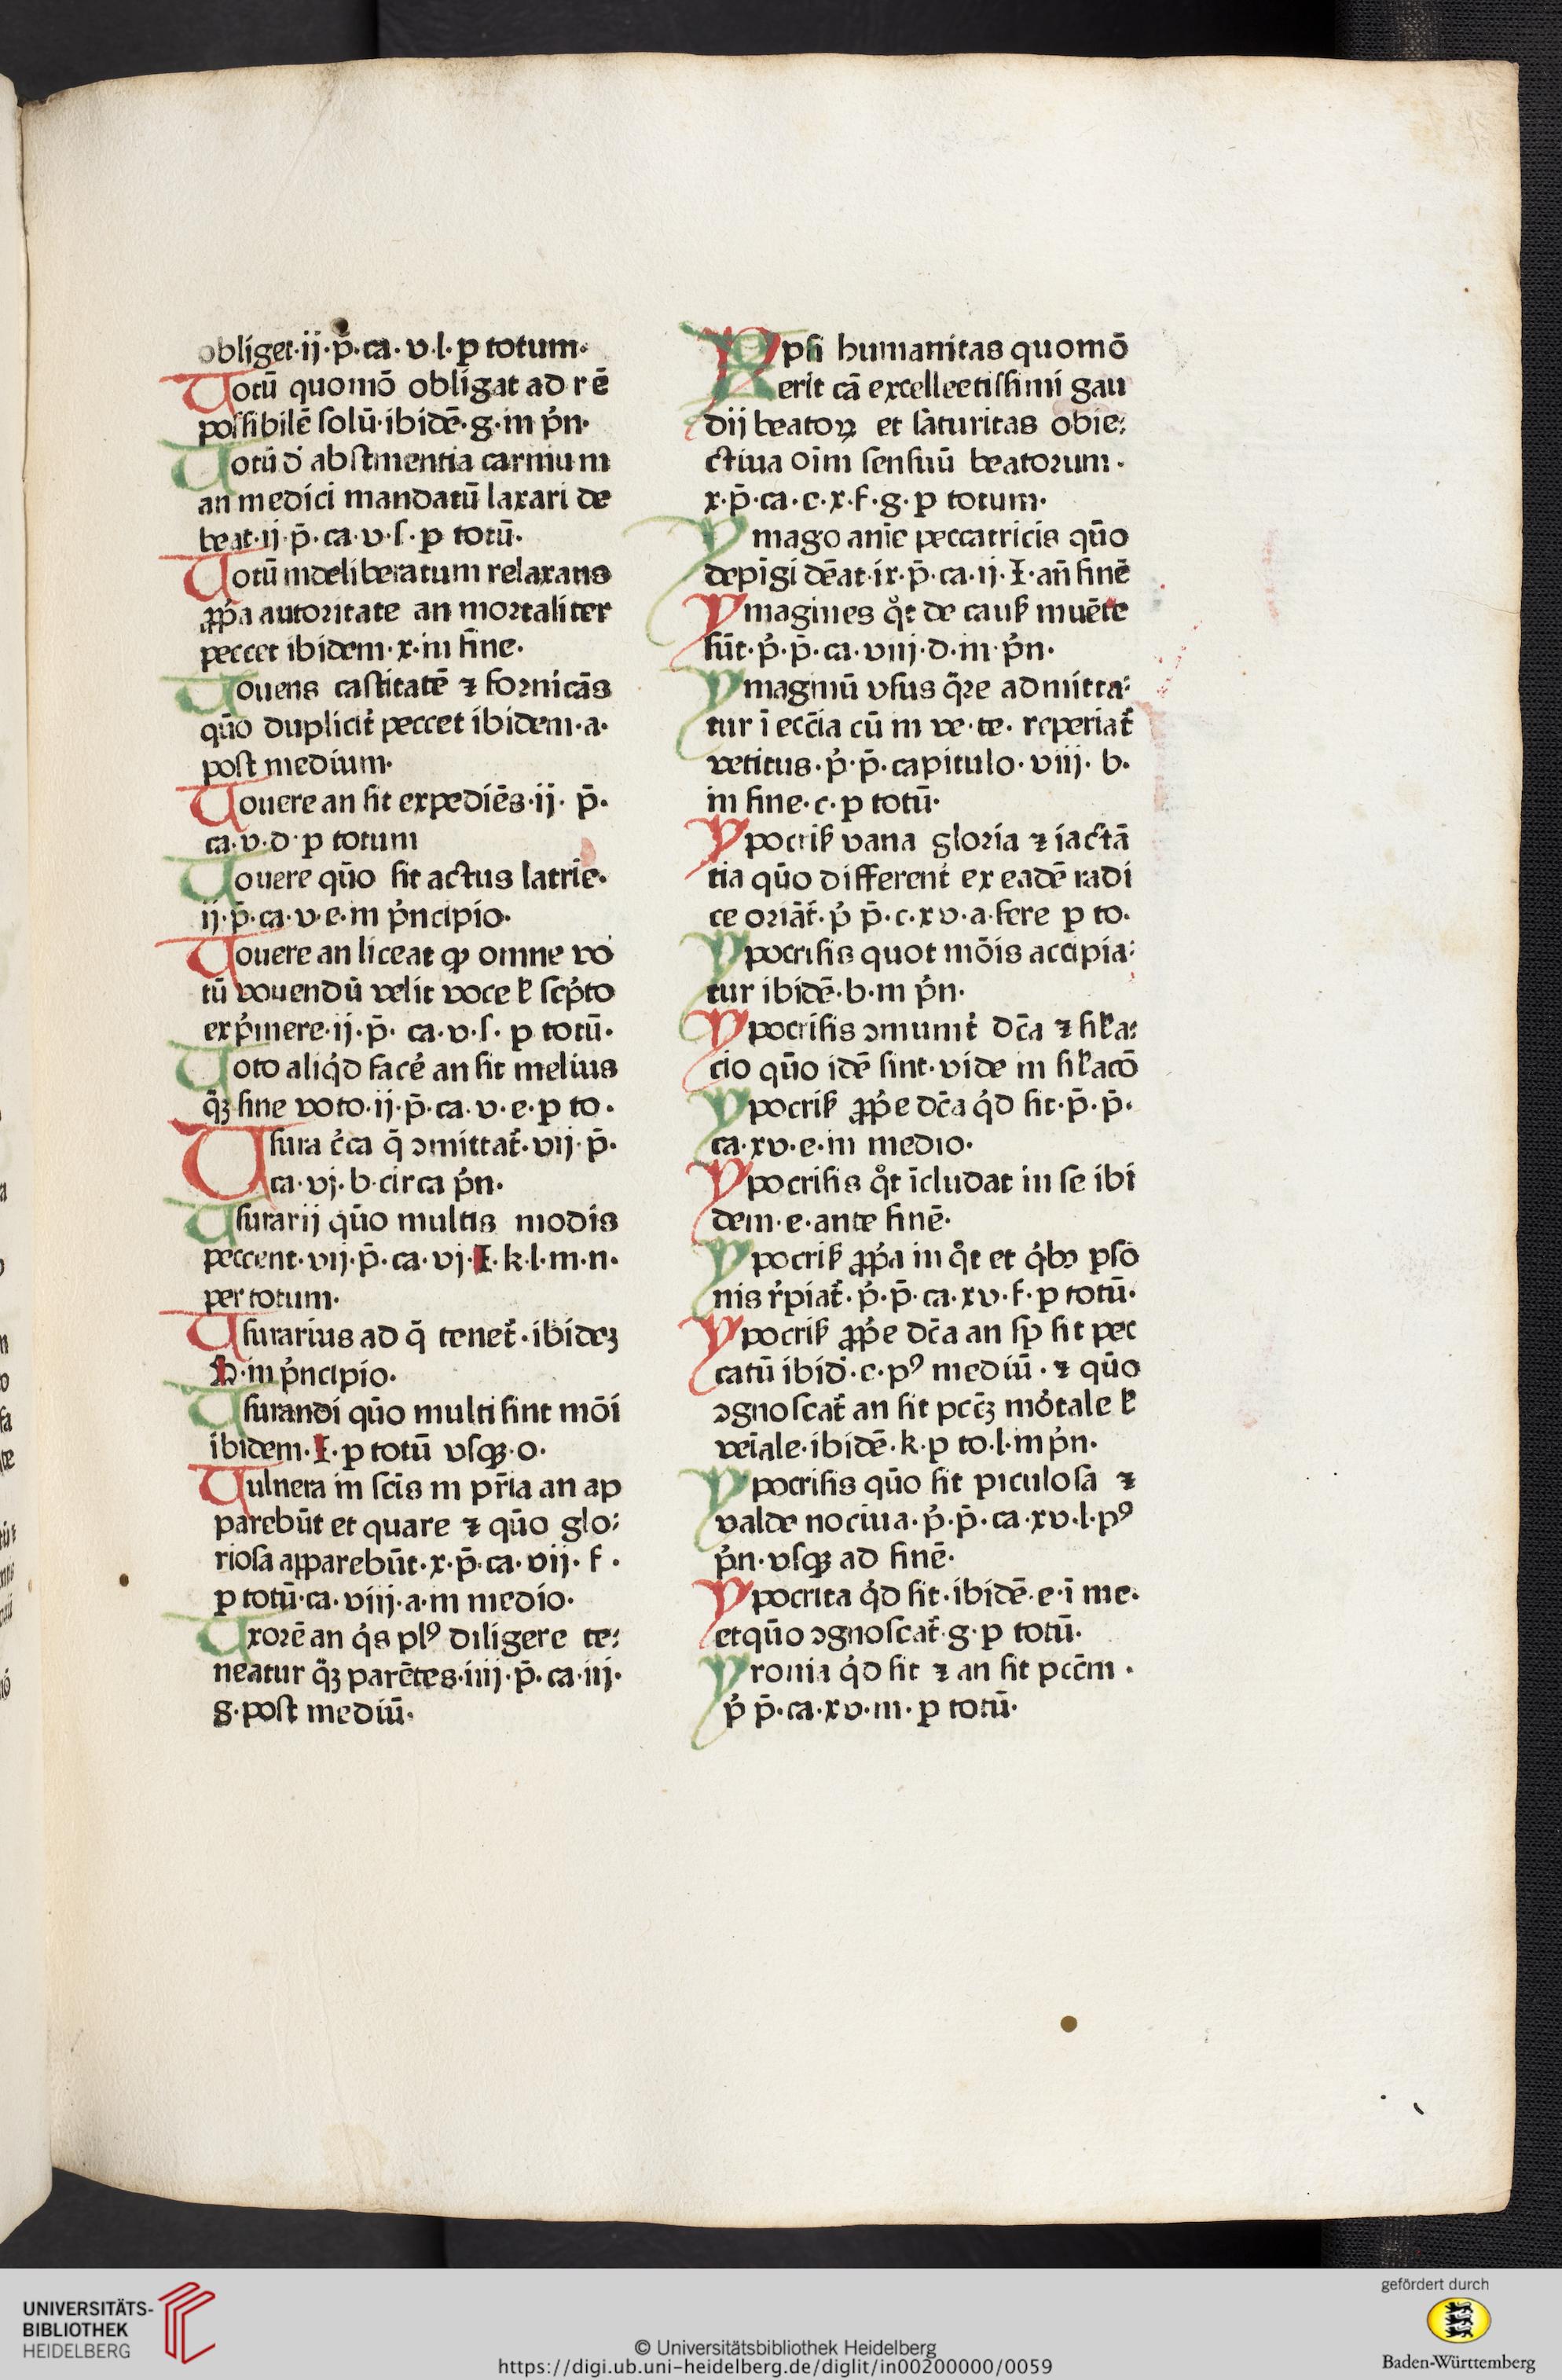 obliget·ij·p̄·ca·v·l·p totum·
Uotū quomō obligat ad rē
possibilē solū·ibidē·g·in p̓n·
Uotū d̓ abstinentia carnium
an medici mandatū laxari de
beat·ij·p̄·ca·v·s·p totū·
Uotū indeliberatum relaxans
ꝓp̓a autoritate an mortaliter
peccet ibidem·x·in fine·
Uouens castitatē ⁊ fornicās
quō duplicit̓ peccet ibidem·a·
post medium·
Uouere an sit expediēs·ij· p̄·
ca·v·d·p totum
Uouere quō sit actus latrie·
ij·p̄·ca·v·e·in p̓ncipio·
Uouere an liceat ꝙ omne vo
tū vouendū velit voce ł scp̓to
exp̓mere·ij·p̄· ca·v·s· p totū·
Uoto aliq̓d facē an sit melius
q̄ꝫ sine voto·ij·p̄·ca·v·e·p to·
Usura c̓ca q̄ ↄmittat̓·vij·p̄·
ca·vj·b·circa p̓n·
Usurarij quō multis modis
peccent·vij·p̄·ca·vj·I·k·l·m·n·
per totum·
Usurarius ad q̄ tenet̓·ibideꝫ
H·in p̓ncipio·
Usurandi quō multi sint mōi
ibidem·I·p totū vsqꝫ·o·
Uulnera in scīs in pr̄ia an ap
parebūt et quare ⁊ quō glo:
riosa apparebūt·x·p̄·ca·vij· f·
p totū·ca·viij·a·in medio·
Uxorē an q̓s plꝰ diligere te:
neatur q̄ꝫ parētes·iiij·p̄·ca·iij·
g·post mediū·
Xpsi humanitas quomō
erit cā excelleetissimi gau
dij beatoꝝ et saturitas obie:
ctiua oīm sensuū beatorum·
x·p̄·ca·c·x·f·g·p totum·
Ymago anīe peccatricis quō
depīgi dēat·ix·p̄·ca·ij·I·an̄ finē
Ymagines q̊t de causꝭ inuēte
sūt·p̓·p̄·ca·viij·d·in p̓n·
Ymaginū vsus q̄re admitta:
tur ī ecc̄ia cū in ve·te· reperiat̓
vetitus·p̓·p̄·capitulo·viij· b·
in fine·c·p totū·
Ypocrisꝭ vana gloria ⁊ iactā
tia quō different̓ ex eadē radi
ce oriāt̓·p̓ p̄·c·xv·a·fere p to·
Ypocrisis quot mōis accipia:
tur ibidē·b·in p̓n·
Ypocrisis ↄmunit̓ dc̄a ⁊ sił̓a:
cio quō idē sint·vide in sił̓acō
Ypocrisꝭ ꝓp̓e dc̄a q̓d sit·p̄·p̄·
ca·xv·e·in medio·
Ypocrisis q̊t īcludat in se ibi
dem·e·ante finē·
Ypocrisꝭ ꝓp̓a in q̊t et q̓bꝰ pso
nis r̓piat̓·p̓·p̄·ca·xv·f·p totū·
Ypocrisꝭ ꝓp̓e dc̄a an sp̄ sit pec
catū ibid̄·c·pꝰ mediū·⁊ quō
ↄgnoscat̓ an sit pccꝫ mōtale ł
veīale·ibidē·k·p to·l·in p̓n·
Ypocrisis quō sit piculosa ⁊
valde nociua·p̓·p̄·ca·xv·l·pꝰ
p̓n·vsqꝫ ad finē·
Ypocrita q̓d sit·ibidē·e·ī me·
etquō ↄgnoscat̓·g·p totū·
Yronia q̓d sit ⁊ an sit pccm̄·
p̓ p̄·ca·xv·m·p totū·
UNIVERSITÄTS-
BIBLIOTHEK
HEIDELBERG
© Universitätsbibliothek Heidelberg
https://digi.ub.uni-heidelberg.de/diglit/in00200000/0059
gefördert durch
Baden-Württemberg